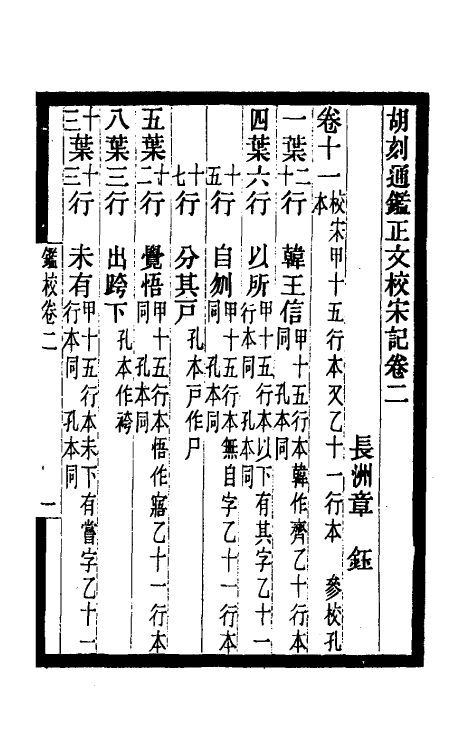 胡刻通鑑正文校宋記卷二
長洲章　鈺
卷十一校宋甲十五行本又乙十一行本　參校孔本
一葉二十行　韓王信甲十五行本韓作齊乙十行本同　孔本同
四葉六行　以所甲十五行本以下有其字乙十一行本同　孔本同
十五行　自刎甲十五行本無自字乙十一行本同　孔本同
十七行　分其戶　孔本戶作尸
五葉十二行　覺悟甲十五行本悟作寤乙十一行本同　孔本同
八葉三行　出跨下　孔本作袴
十三葉十三行　未有甲十五行本未下有嘗字乙十一行本同　孔本同
鑑校卷二
一